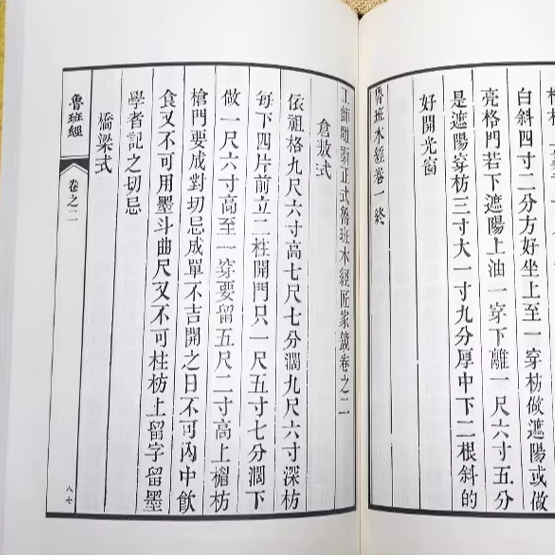 白斜四寸二分方好坐上至一穿枋做遮陽或做
亮格門若下遮陽上油一穿下離一尺六寸五分
是遮陽穿枋三寸大一寸九分厚中下二根斜的
好開光窗
魯班木經卷一終
工師雕斵正式魯班木經匠家鏡卷之二
倉敖式
依祖格九尺六寸高七尺七分濶九尺六寸深枋
每下四片前立二柱開門只一尺五寸七分濶下
做一尺六寸高至一穿要留五尺二寸高上楣枋
槍門要成對切忌成單不吉開之日不可內中飲
食又不可用墨斗曲尺又不可柱枋上留字留墨
學者記之切忌
橋梁式
魯班經
卷之二
八七